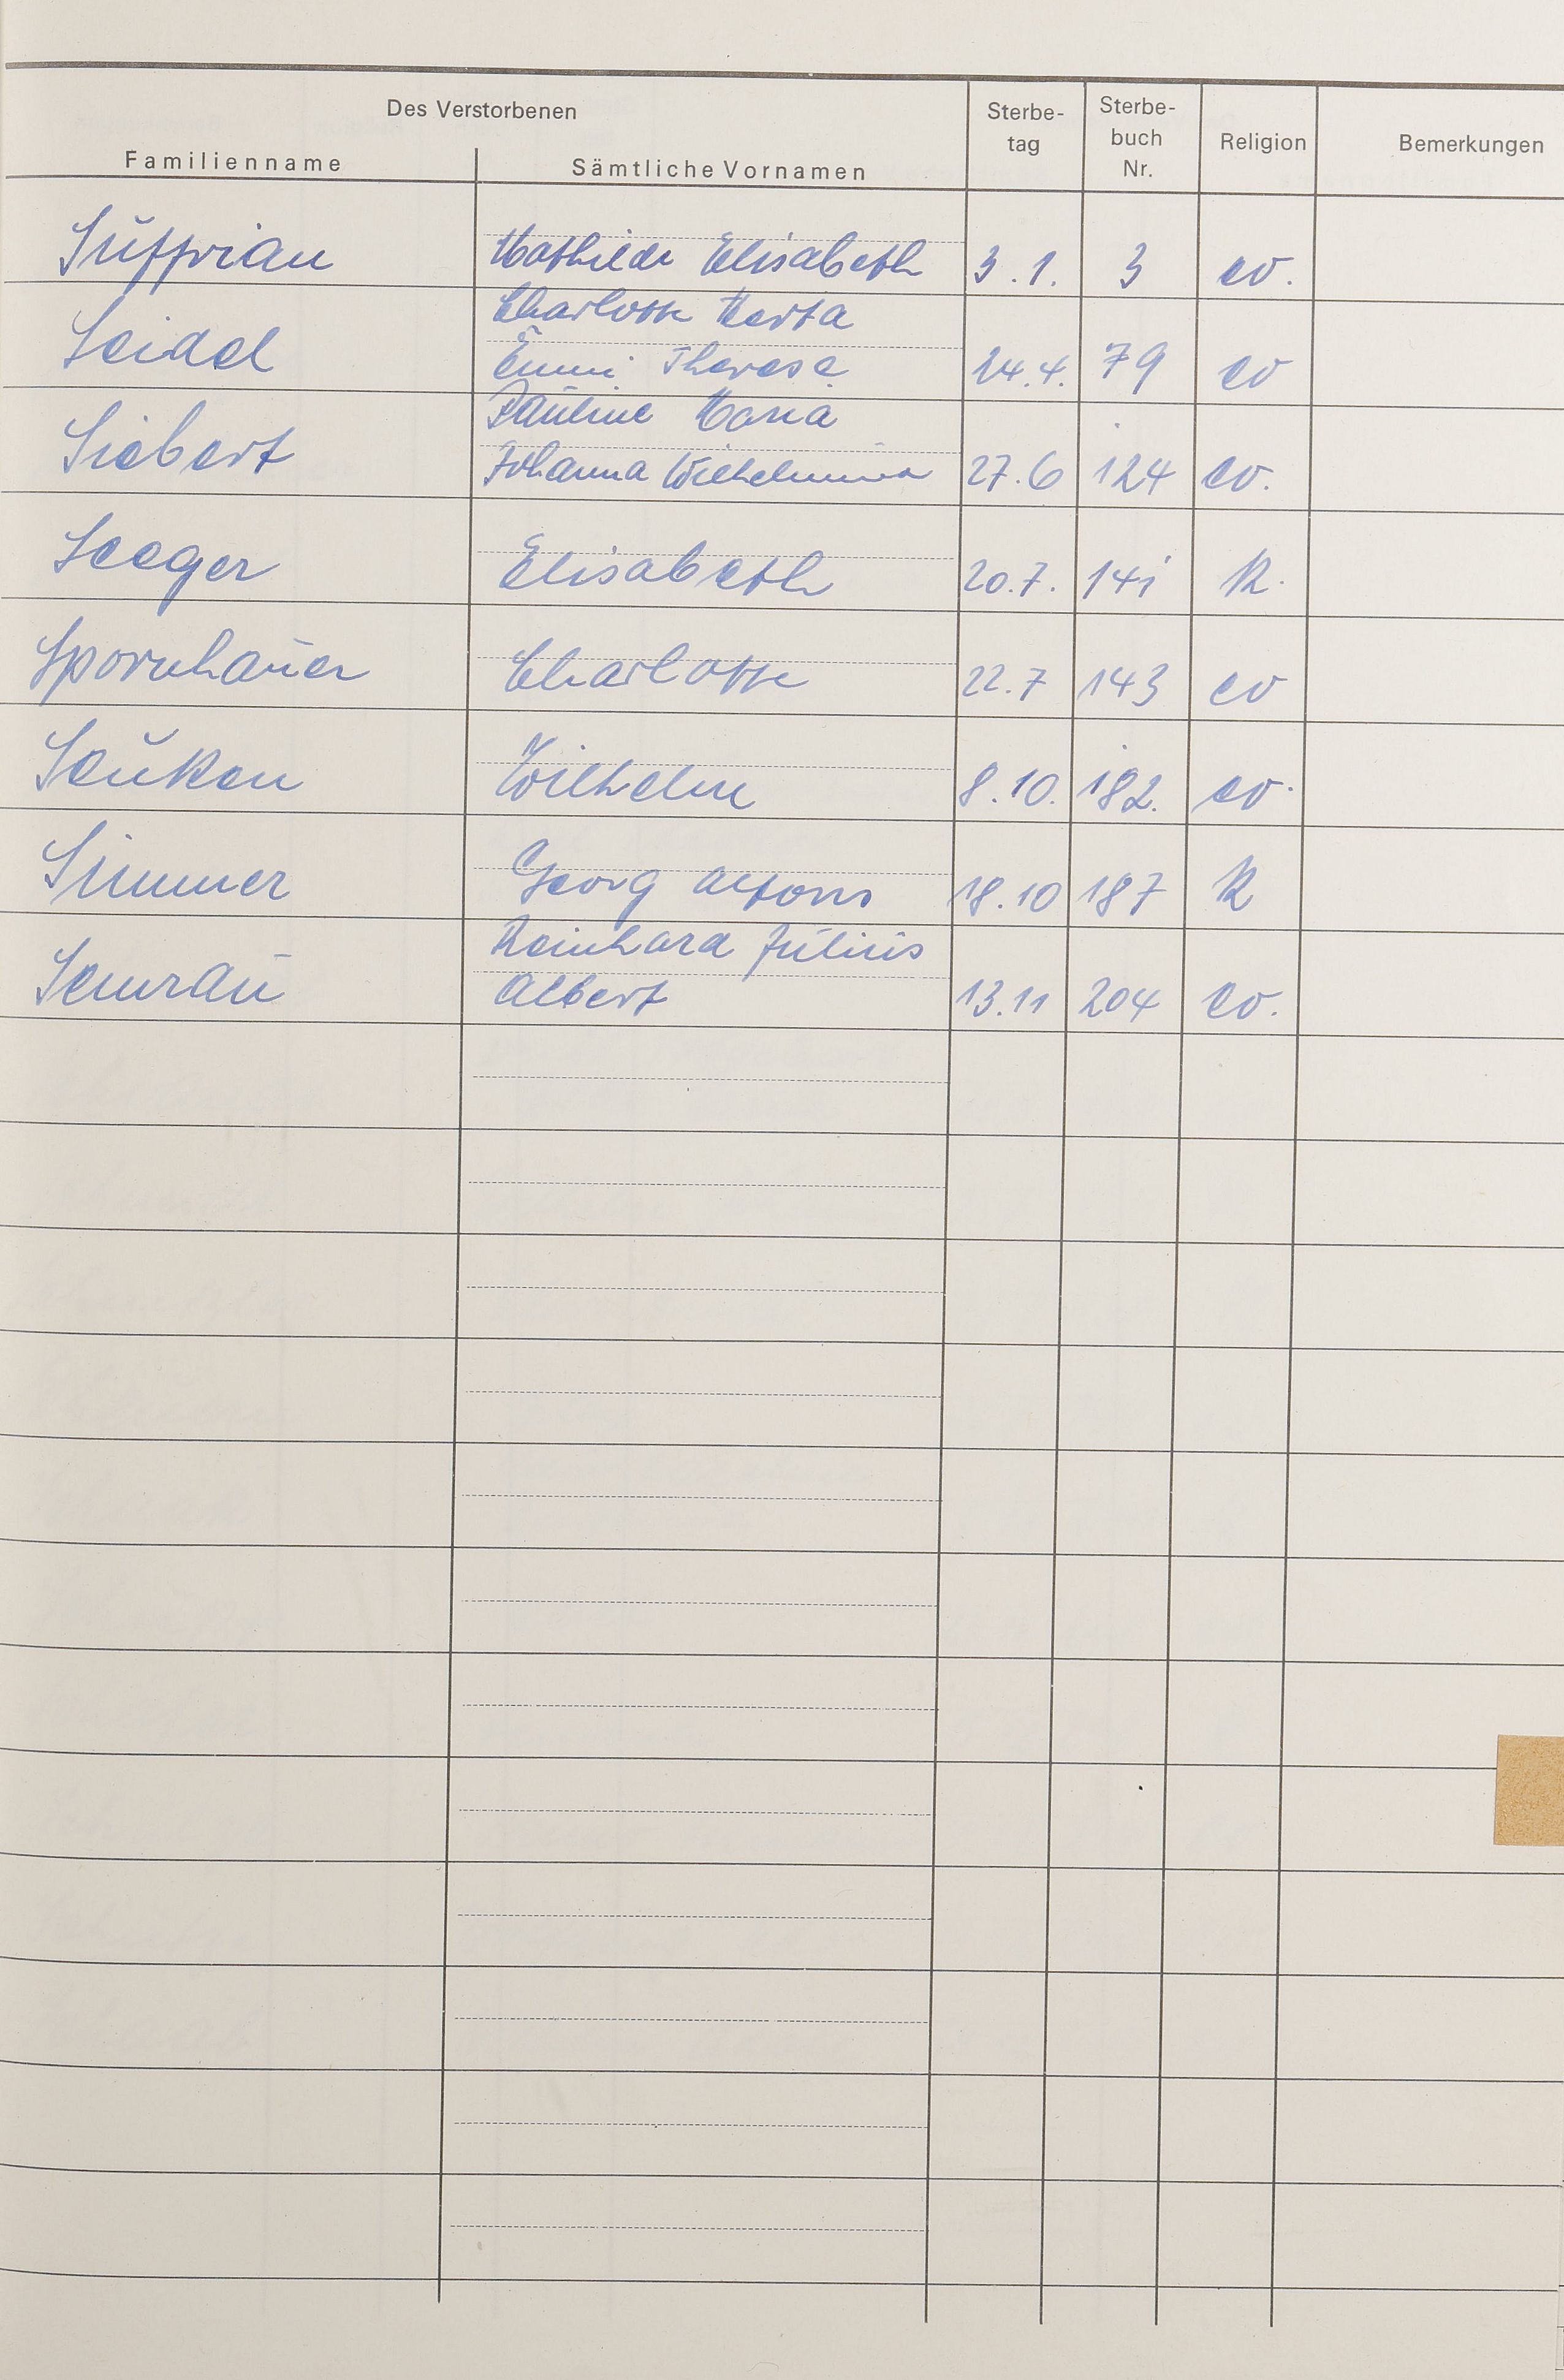 Des Verstorbenen
Familienname
Sämtliche Vornamen
Sterbe-
tag
Sterbe-
buch
Nr.
Religion
Bemerkungen
Suffrian Mathilde Elisabeth 3.1. 3 ev.
Charlotte Herta
Seidel Emmi Therese 24.4. 79 ev
Pauline Maria
Siebert Johanna Wilhelmina 27.6 124 ev.
Seeger Elisabeth 20.7. 141 k.
Spornhauer Charlotte 22.7 143 ev
Sauken Wilhelm 8.10. 182. ev.
Simmer Georg Alfons 18.10 187 k
Reinhard Julius
Semrau Albert 13.11 204 ev.